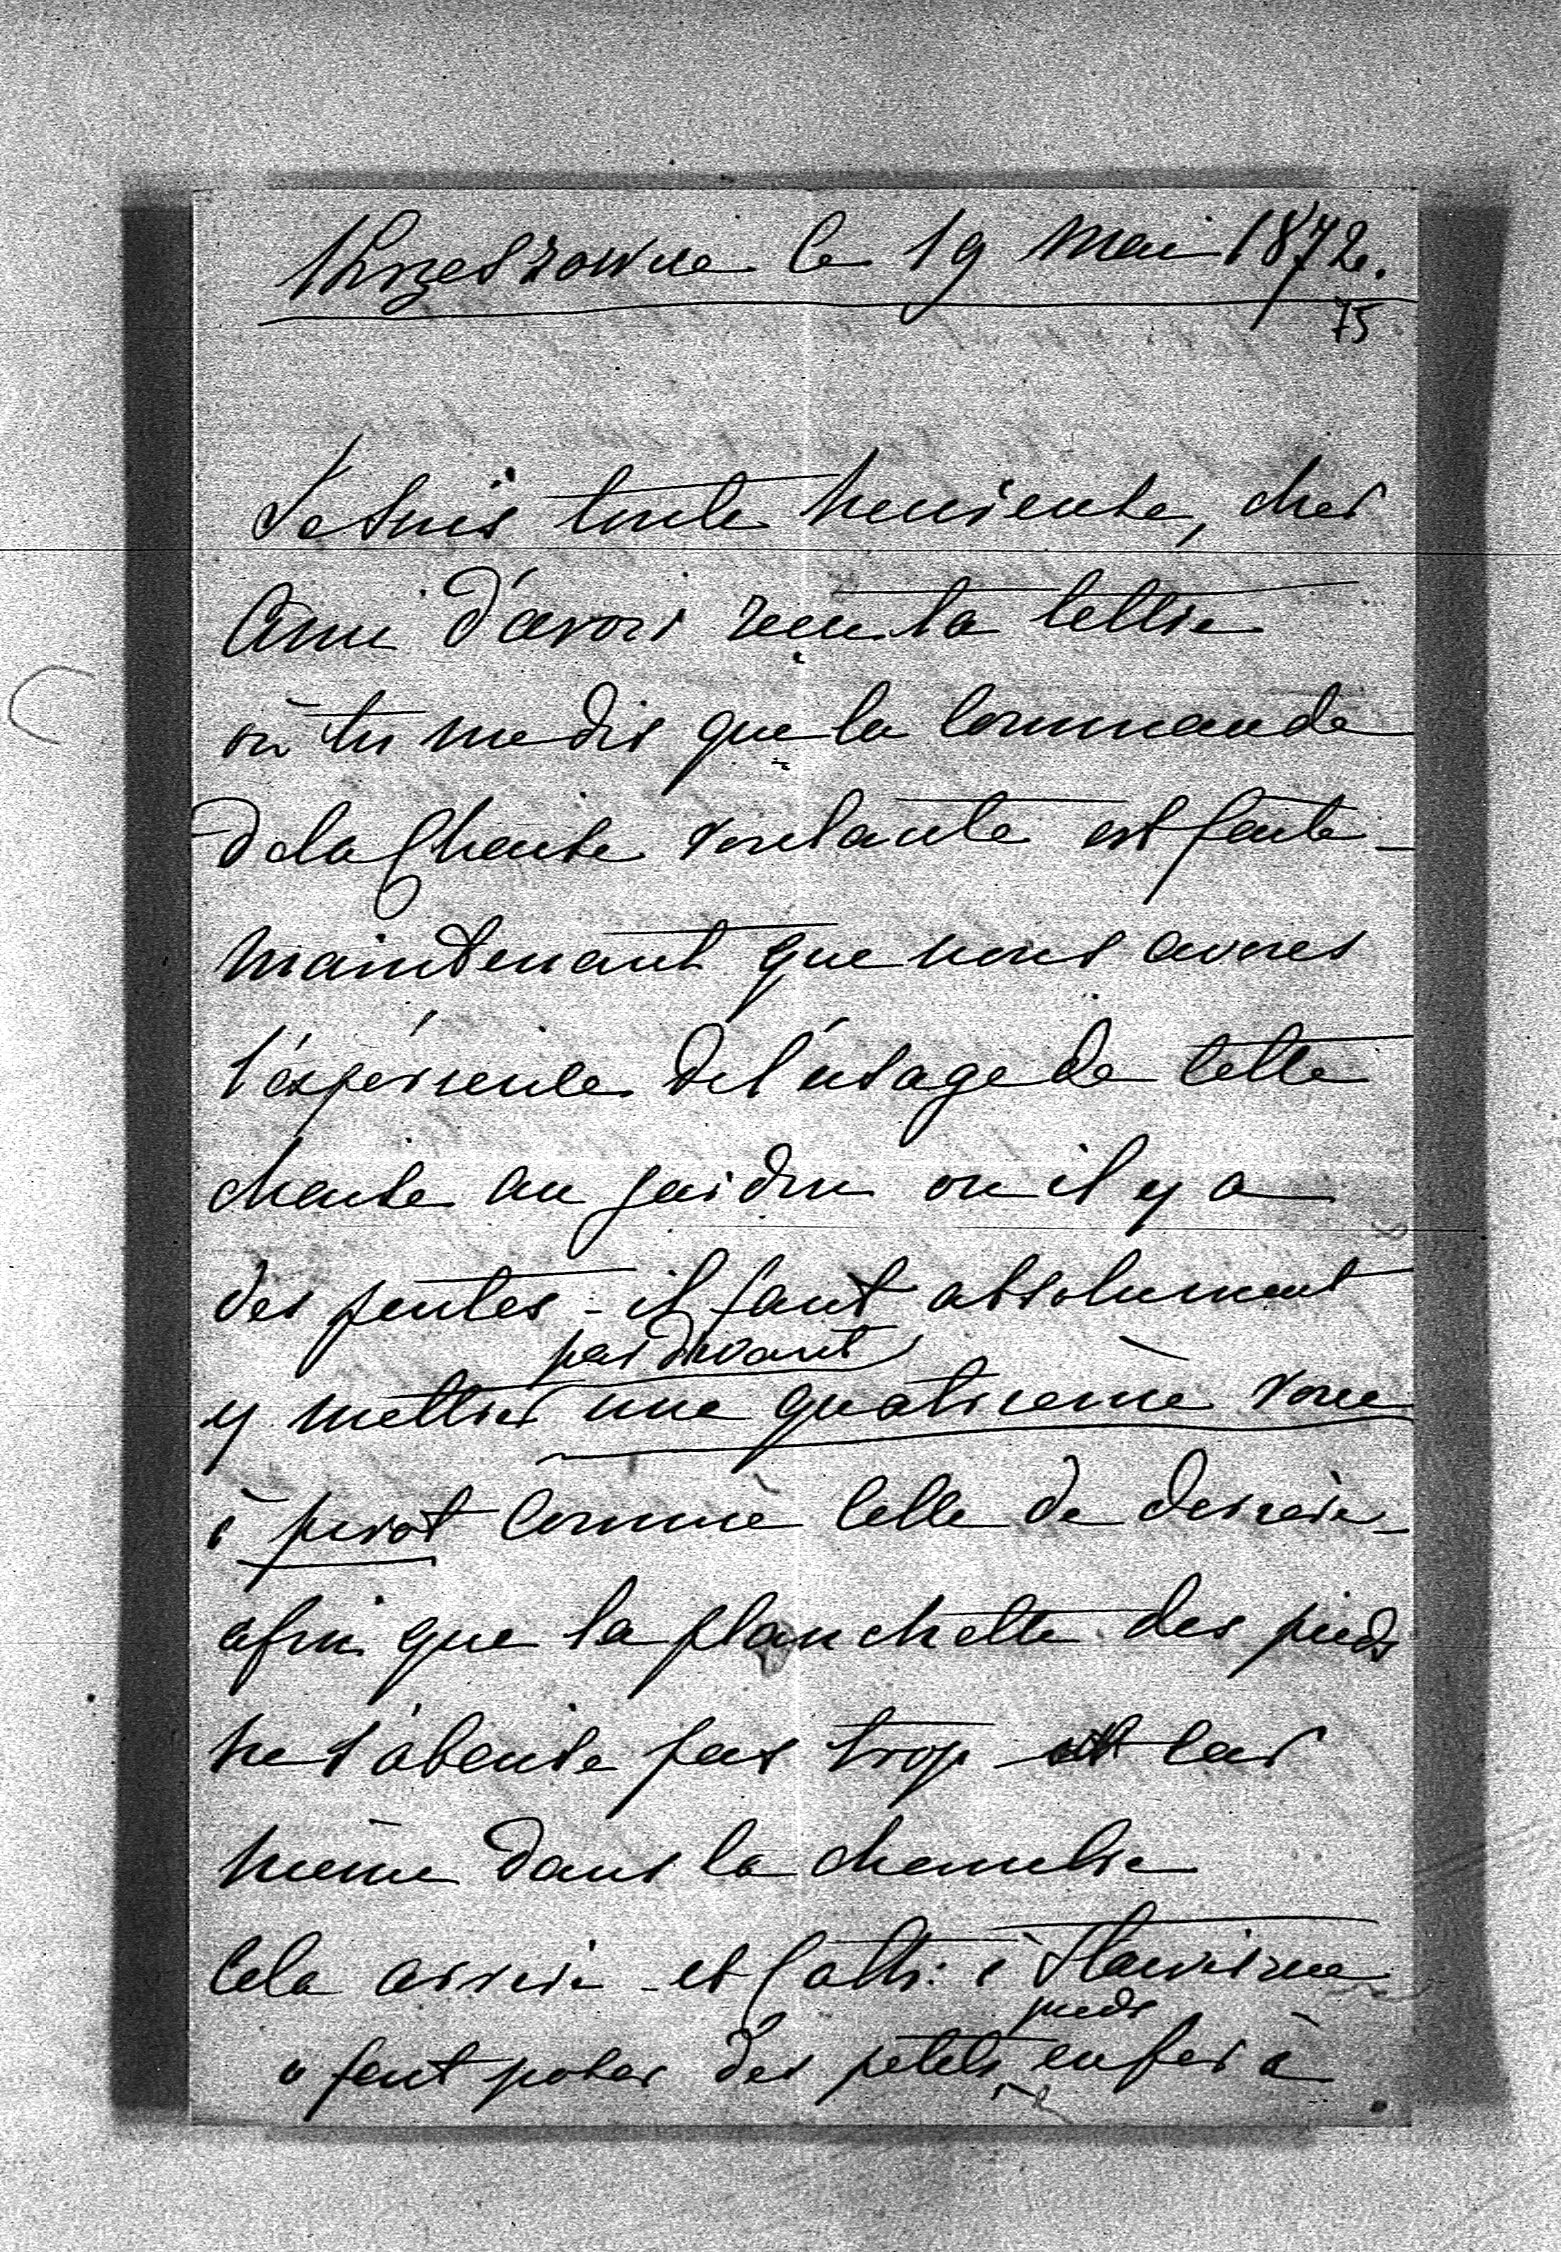 Krzeszowice le 19 Mai 1872.
75
Je suis toute heureuse, cher
Ami d'avoir reçu ta lettre
où tu me dis que la commande
de la Chaise roulante est faite -
maintenant que nous avons
l'expérience de l'usage de cette
chaise au jardin ou il y a
des pentes - il faut absolument
par devant
y mettre une quatrième roue
à pivot comme celle de derrière -
afin que la planchette des pieds
ne s'abaisse pas trop car
même dans la chambre
cela arrive - et Cath: à
pieds
a fait poser des petits en fer à